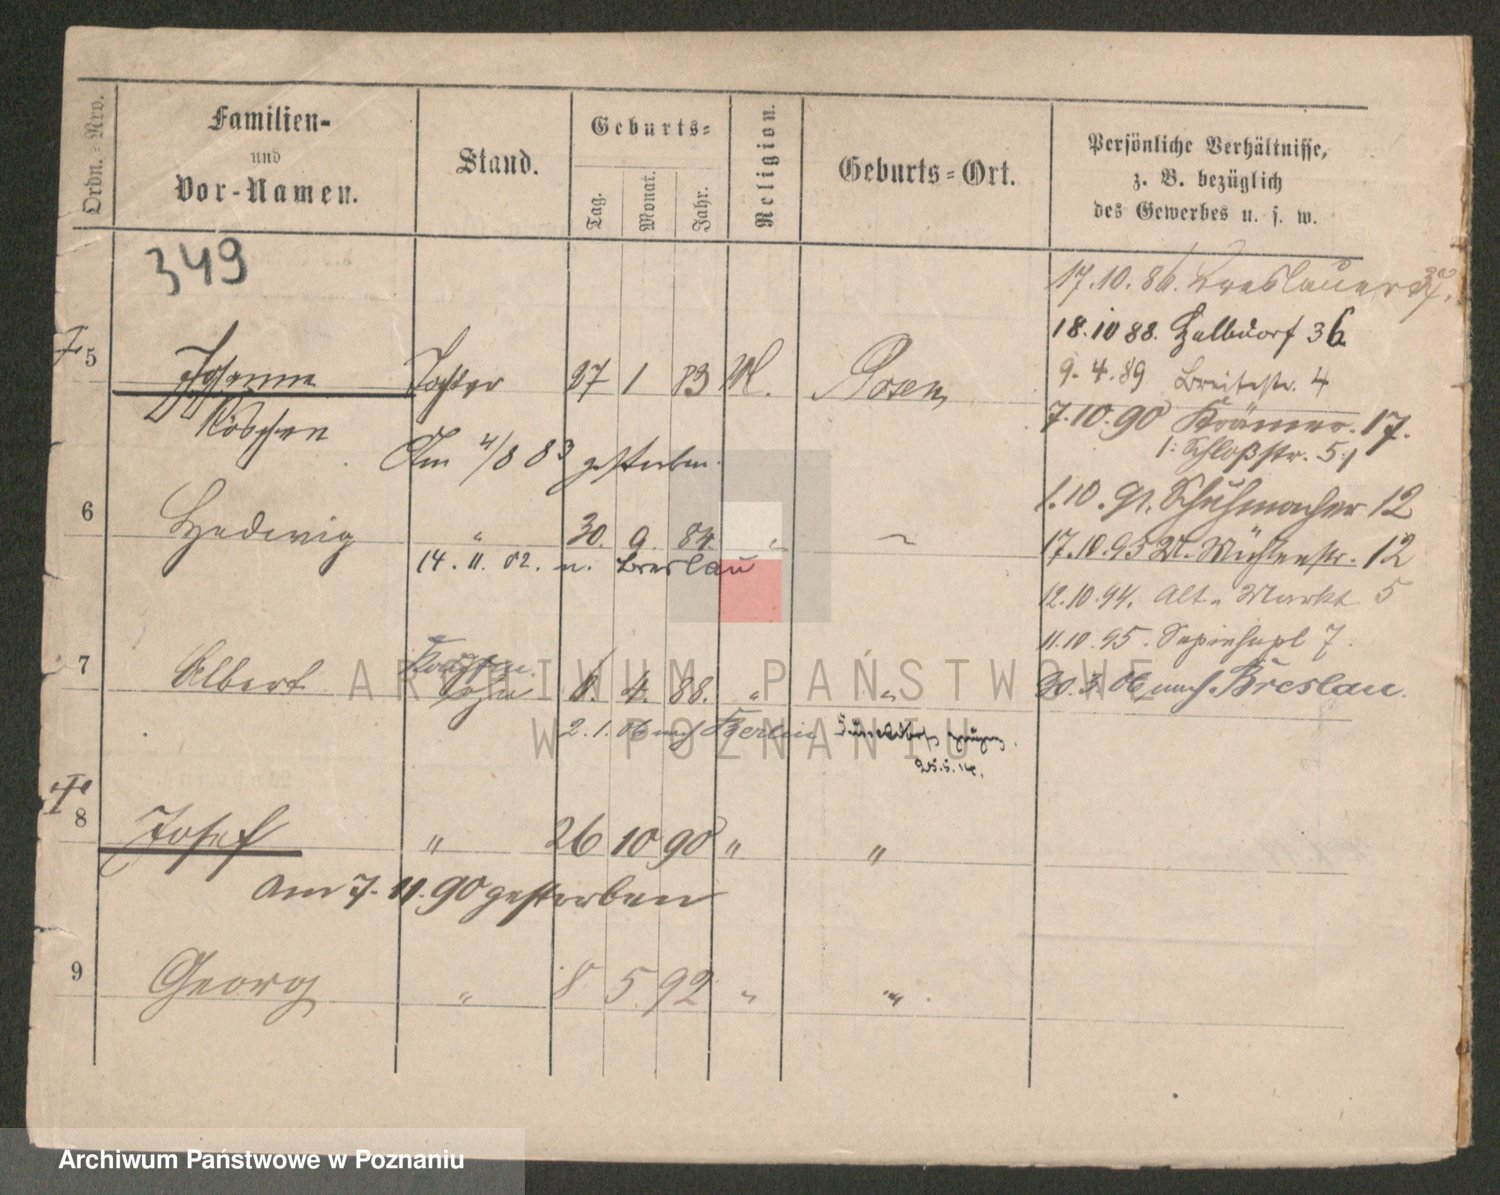 Ordn.-Nro.
Familien-
und
Vor-Namen.
Stand.
Geburts-
Tag.
Monat.
Jahr.
Religion.
Geburts-Ort.
Persönliche Verhältnisse,
z. B. bezüglich
des Gewerbes u. s. w.
349
17.10.86. Breslauerstr.
18.10 88. Halbdorf 36
5 Tochter 27 1 83 M. Posen,
9. 4. 89 Breitestr. 4
7.10.90 Krämer. 17.
Am 4/8 83 gestorben.
1: Schloßstr. 5:1
6 Hedwig " 30. 9. 84. "
1.10.91. Schuhmacher 12
14. 11. 02. n. Breslau
17.10.93 Mühlenstr. 12
12.10.94. Alt. Markt 5
11.10.95. Sapiehapl 7.
7 Albert Sohn 6. 4. 88. " "
30.3.06 nach Breslau.
2.1.06 nach Berlin
Düsseldorf
25.5.14.
8 Josef " 26 10 90 " "
am 7. 11. 90 gestorben
9 Georg " 8 5 92 " "
ARCHIWUM PAŃSTWOWE
W POZNANIU
Archiwum Państwowe w Poznaniu